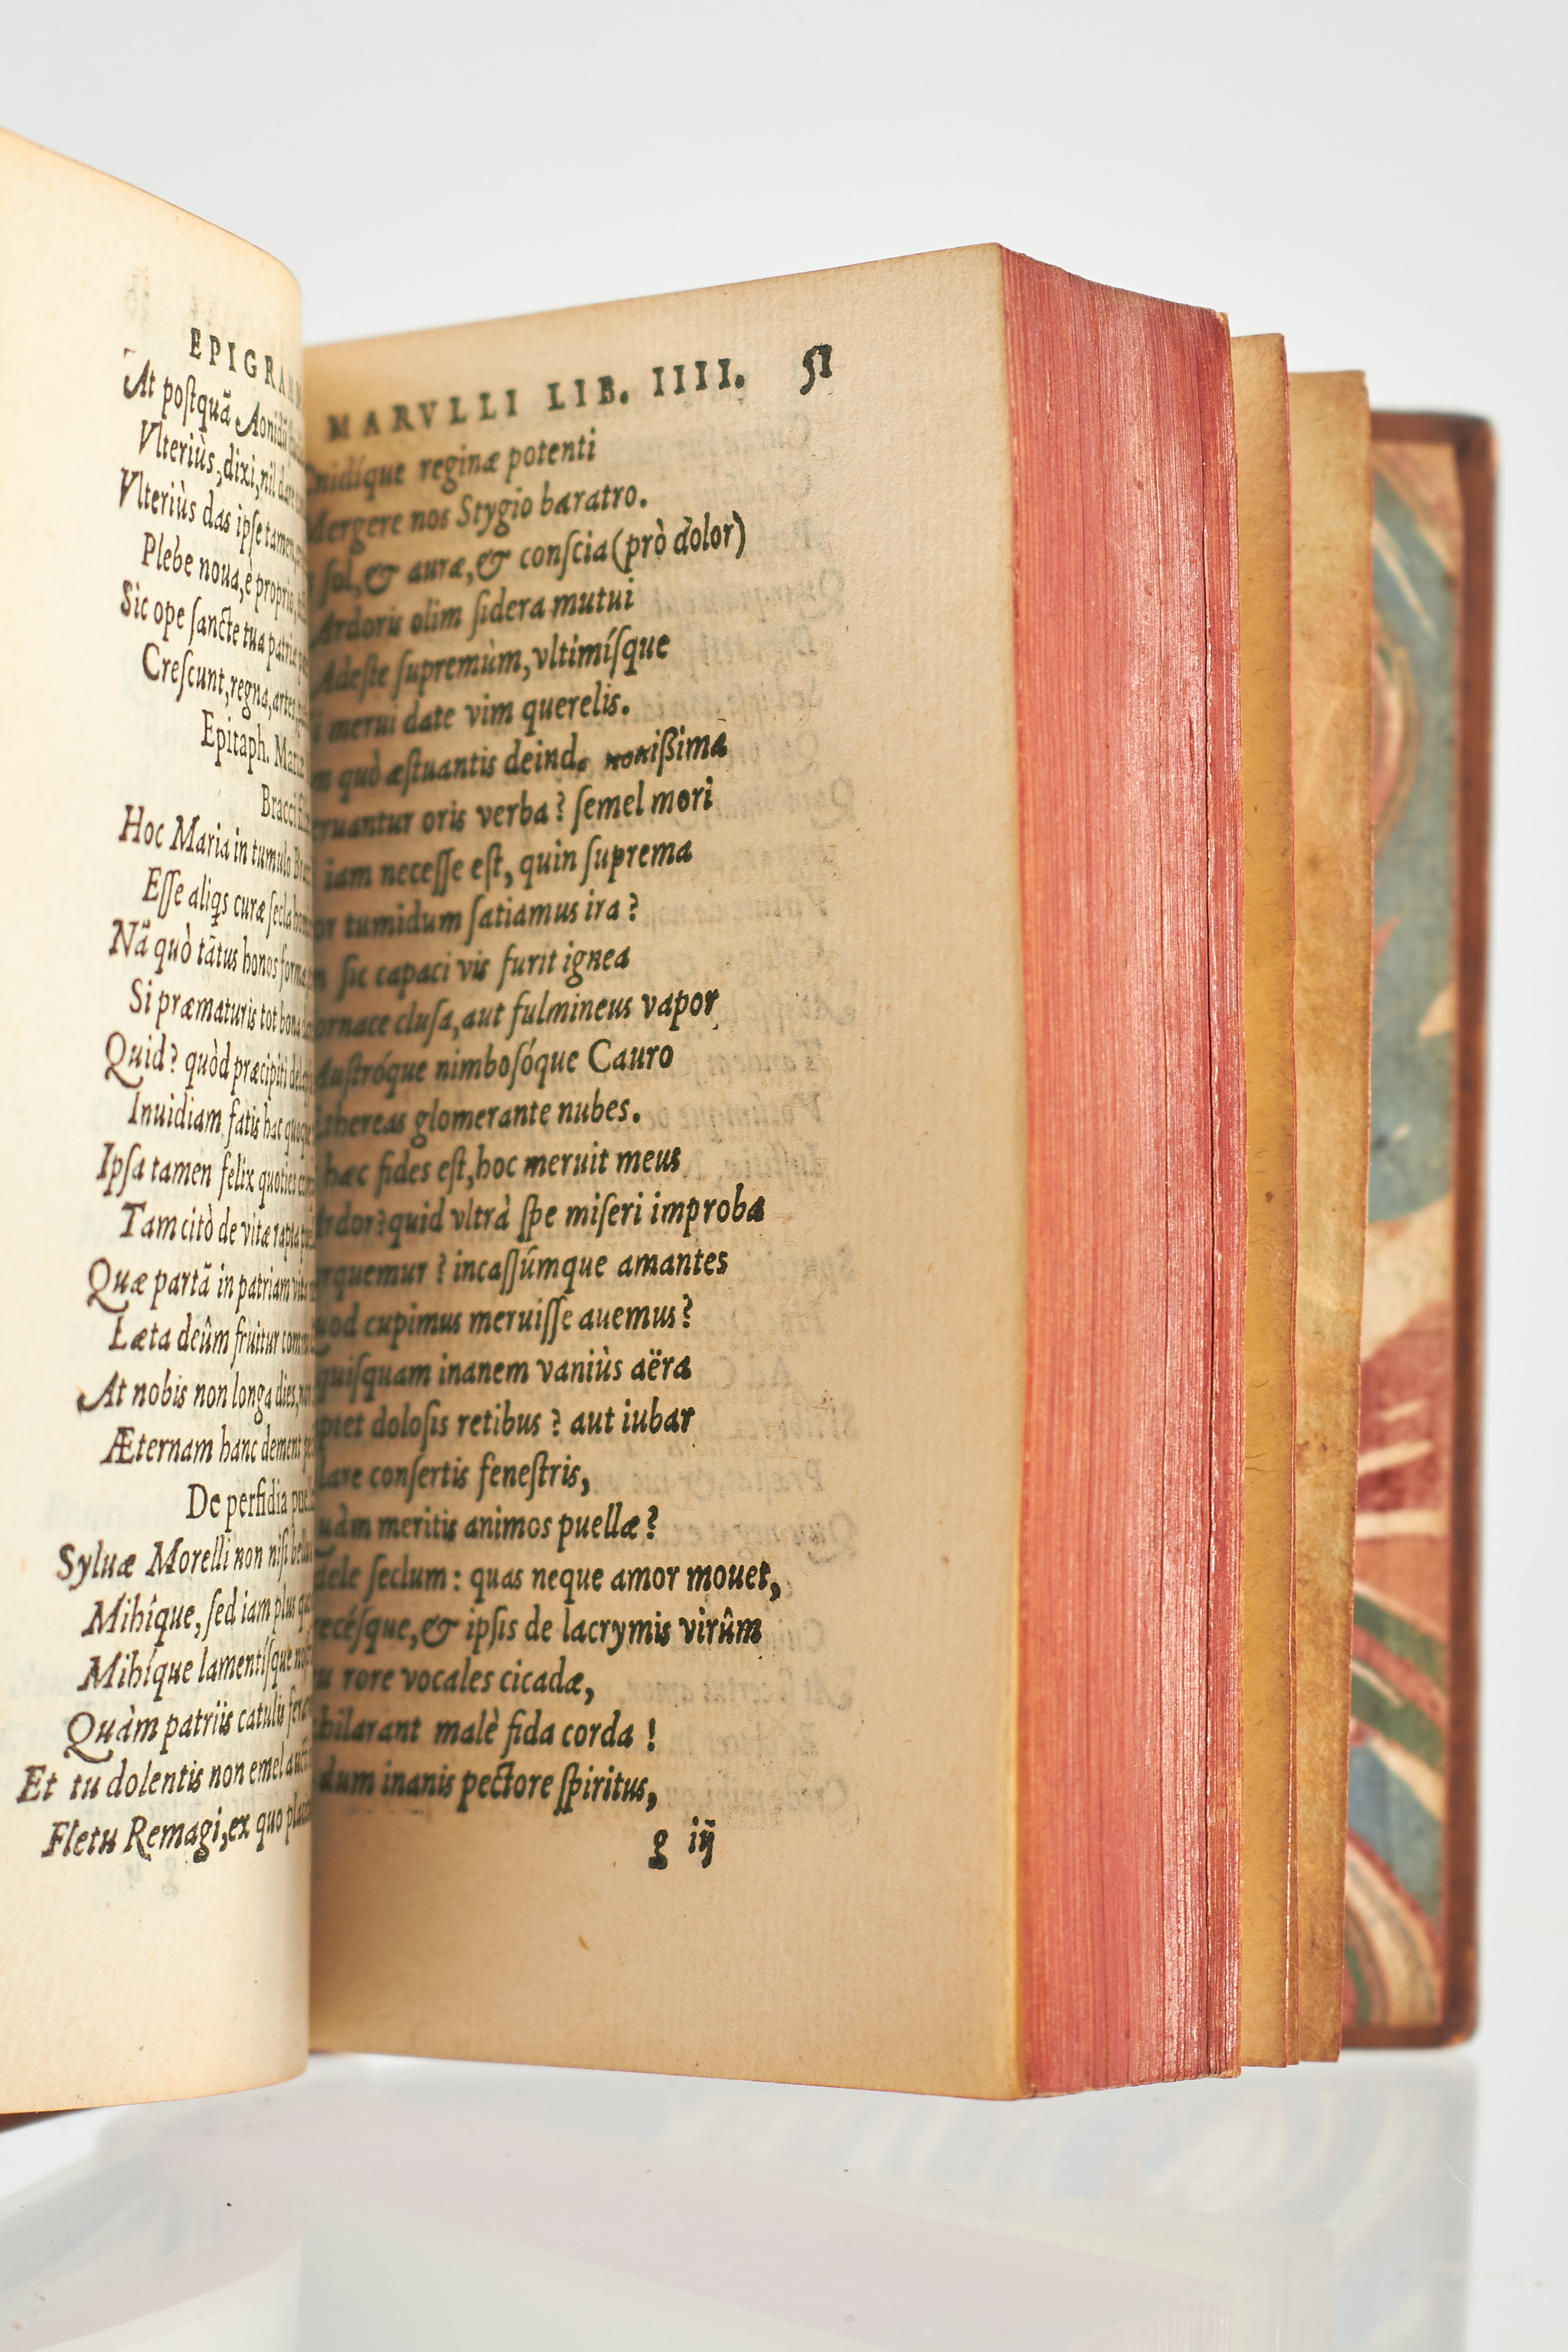 EPIGRAM
At postquã Aonidũ
Vlteriùs, dixi, nil dare
Vlteriùs das ipse tamen,
Plebe noua, è proprio,
Sic ope sancte tua patria
Crescunt, regna, artes,
Epitaph. Mariæ
Bracci fi
Hoc Maria in tumulo
Esse aliqs curæ secla
Nã quò tãtus honos formæ
Si præmaturis tot bona
Quid? quòd præcipiti
Inuidiam fatis hac quoque
Ipsa tamen felix quoties
Tam citò de vitæ rapta
Quæ partã in patriam
Læta deûm fruitur
At nobis non longa dies,
Æternam hanc demens
De perfidia puel
Syluæ Morelli non nisi
Mihíque, sed iam plus
Mihíque lamentísque
Quàm patriis catulis
Et tu dolentis non emel
Fletu Remagi, ex quo
MARVLLI LIB. IIII. 51
Cnidíque reginæ potenti
Mergere nos Stygio baratro.
sol, & auræ, & conscia (prò dolor)
Ardoris olim sidera mutui
Adeste supremùm, vltimísque
merui date vim querelis.
quò æstuantis deind. nouißima
ruantur oris verba? semel mori
iam necesse est, quin suprema
or tumidum satiamus ira?
sic capaci vis furit ignea
ornace clusa, aut fulmineus vapor
Austróque nimbosóque Cauro
thereas glomerante nubes.
hæc fides est, hoc meruit meus
Ardor? quid vltrà spe miseri improba
rquemur? incassúmque amantes
uod cupimus meruisse auemus?
quisquam inanem vaniùs aëra
ptet dolosis retibus? aut iubar
lare consertis fenestris,
uàm meritis animos puellæ?
dele seclum: quas neque amor mouet,
ecésque, & ipsis de lacrymis virûm
u rore vocales cicadæ,
hilarant malè fida corda!
dum inanis pectore spiritus,
g iij